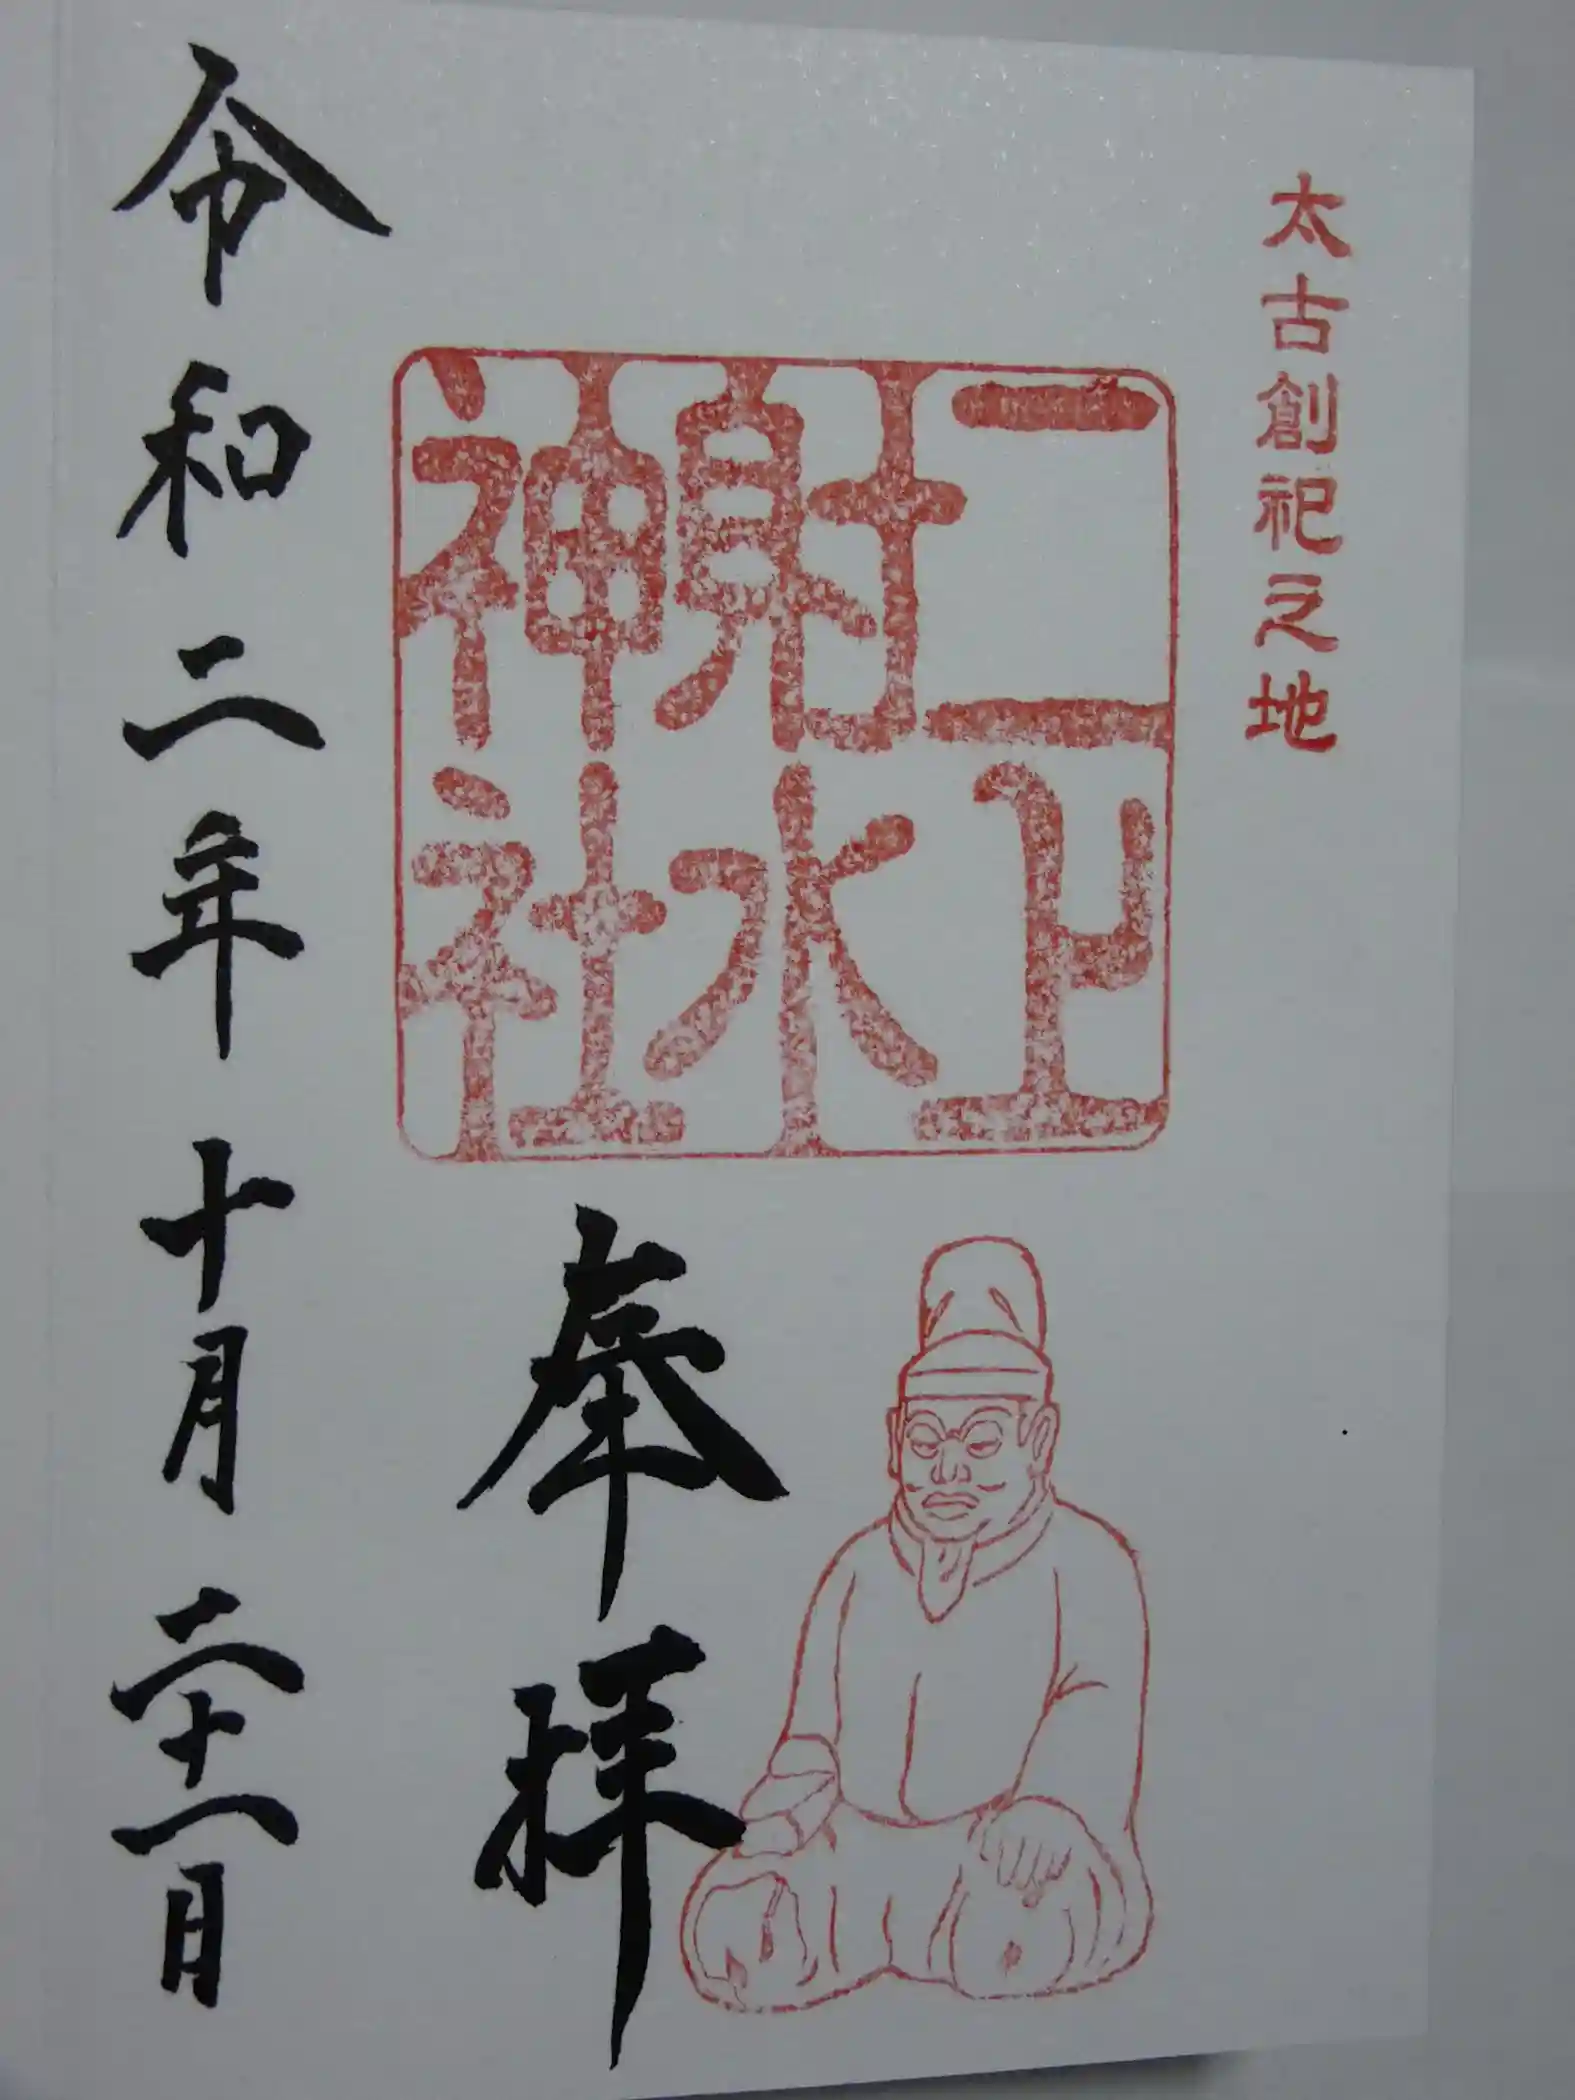 太古創祀之地
二上
射水
神社
奉拝
令和二年十月二十一日